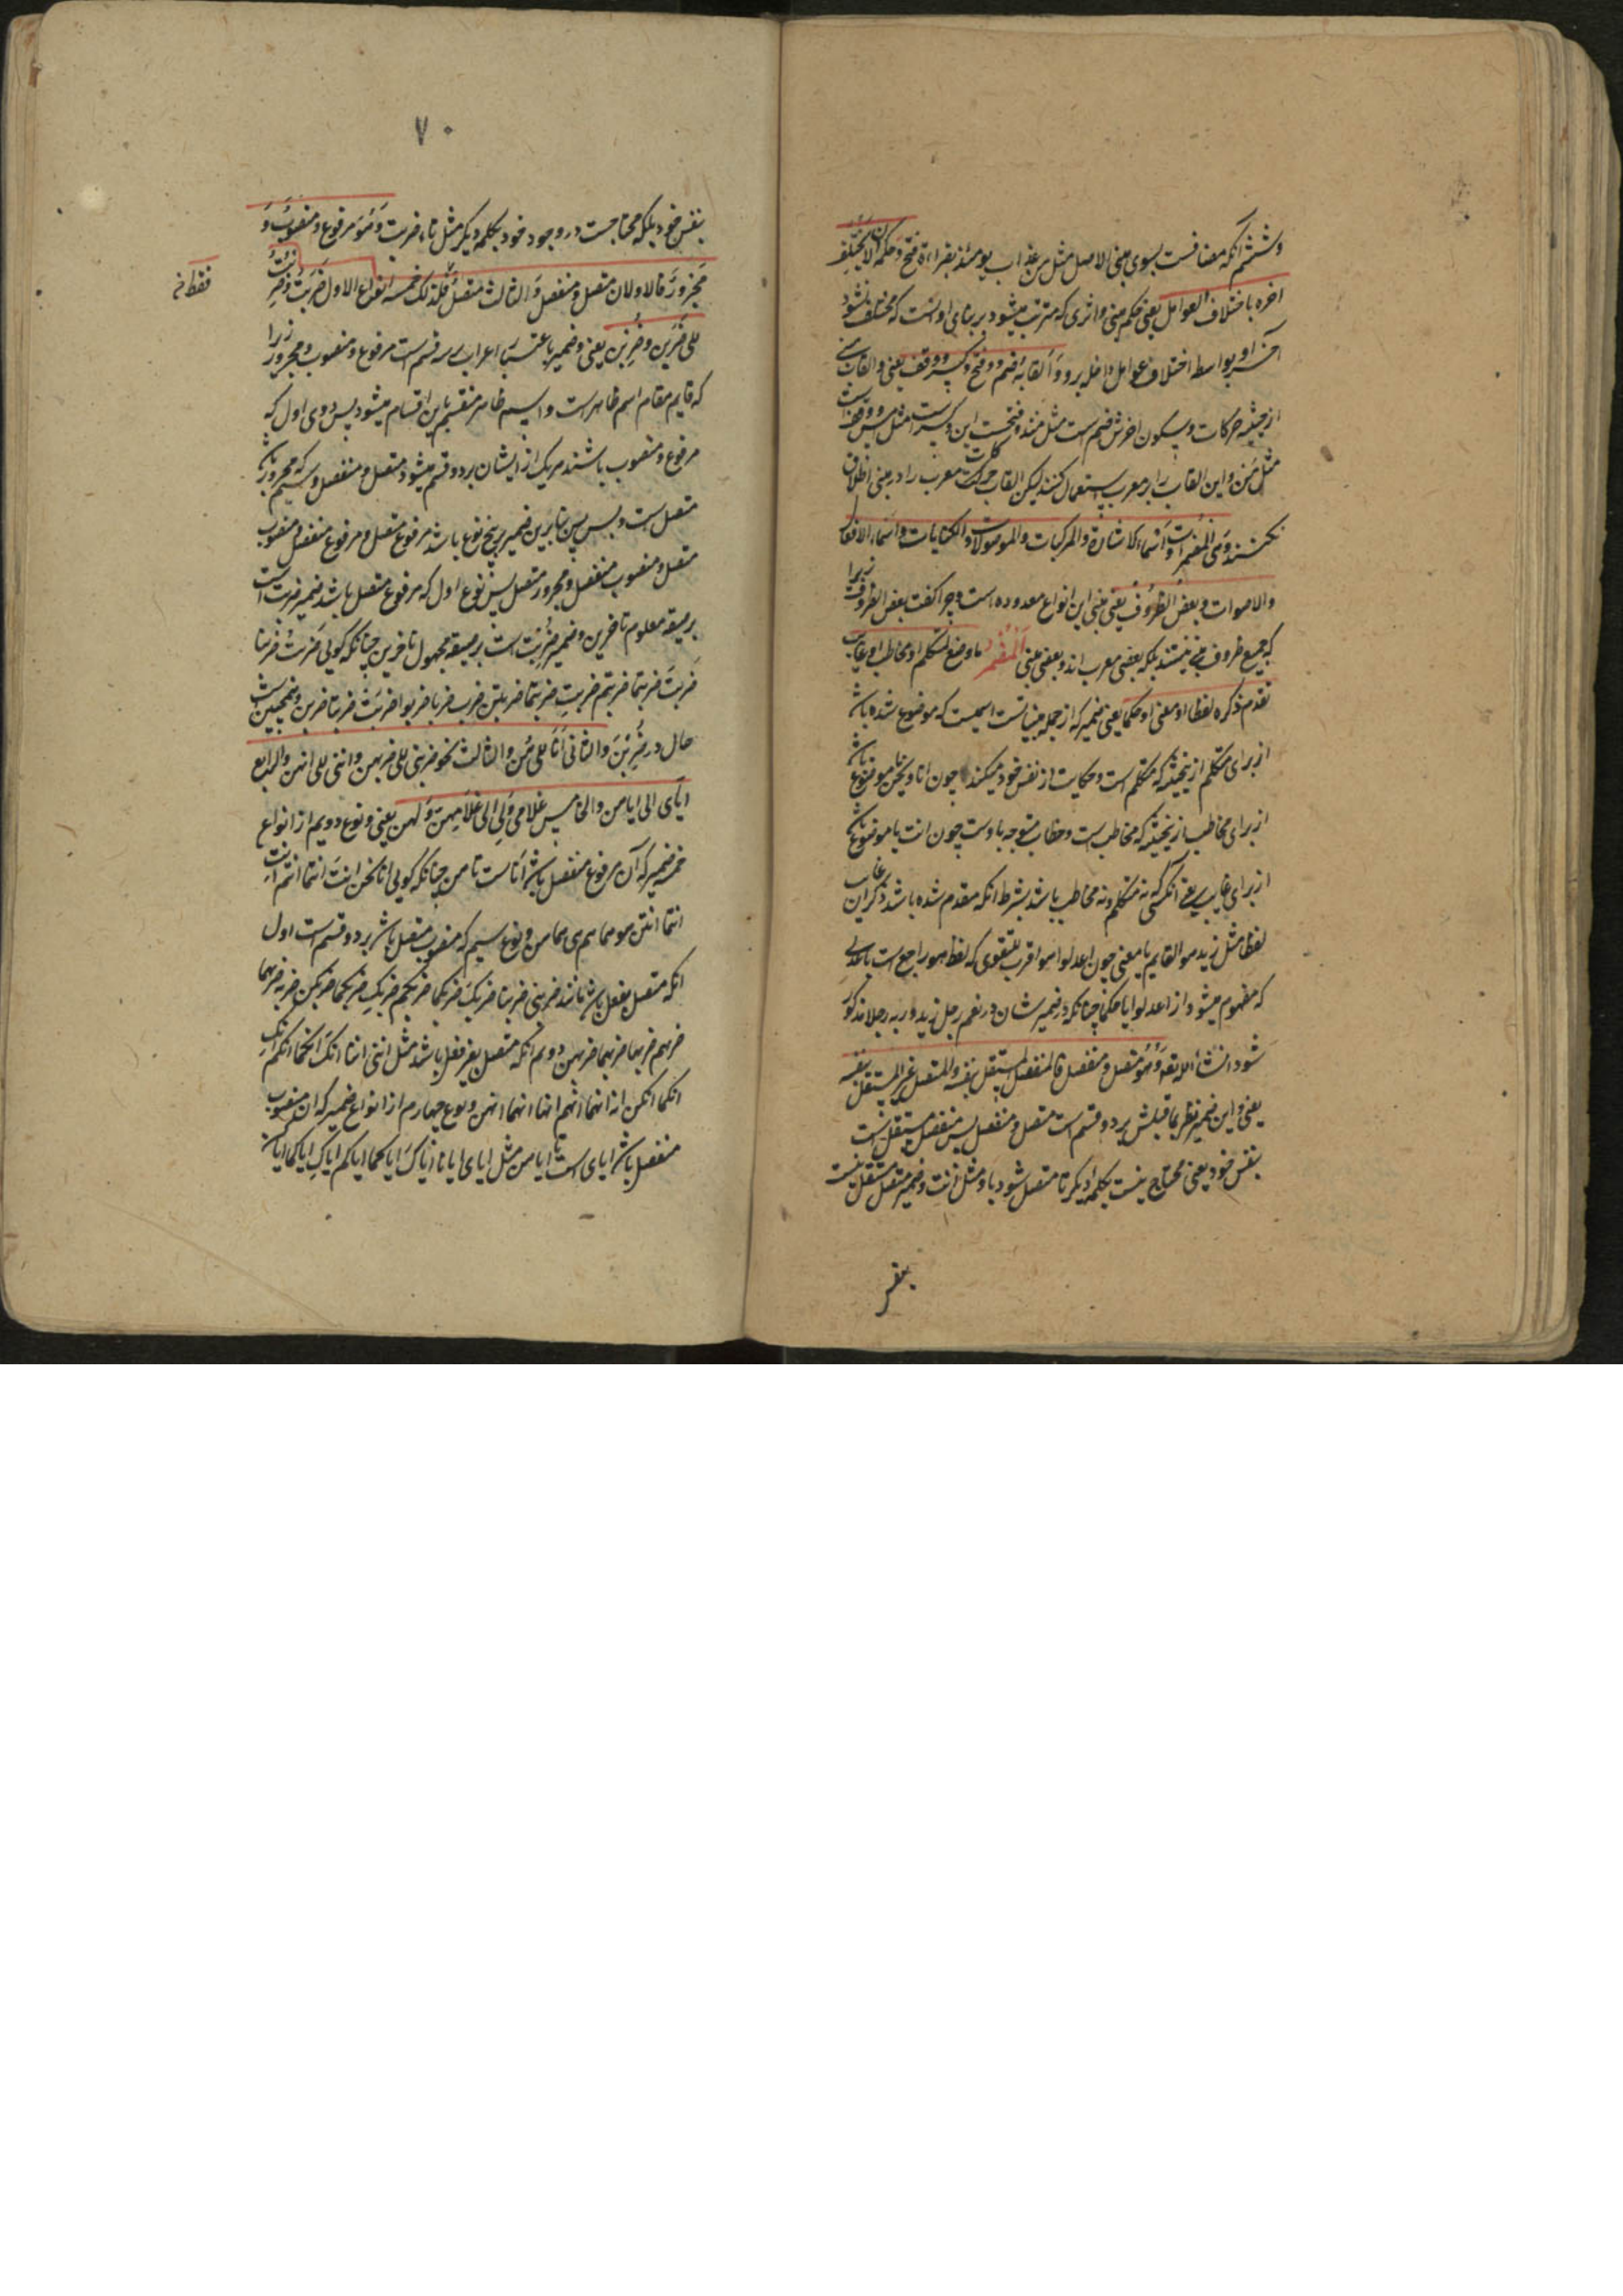 وششم آنکه مضافست بسوی مبنی الاصل مثل من عذاب یومئذ بقراءة فتح وحکمه ان لا یختلف
اخره باختلاف العوامل یعنی حکم مبنی واثری که مترتب میشود بر بنای او انست که مختلف نشود
آخر او بواسطه اختلاف عوامل داخله برو والقابه ضم وفتح وکسر ووقف یعنی والقاب مبنی
از حیثیه حرکات وسکون اخرش ضم است مثل منذ وفتحست این وکسر است مثل امس ووقف است
مثل من واین القاب را بر معرب استعمال کنند لیکن القاب حرکت معرب را در مبنی اطلاق
نکنند وهی المضمرات واسماء الاشارة والمرکبات والموصولات والکنایات واسماء الافعال
والاصوات وبعض الظروف یعنی مبنی این انواع معدوده است وچرا گفت بعض الظروف زیرا
که جمیع ظروف مبنی نیستند بلکه بعضی معرب اند وبعضی مبنی المضمر ما وضع لمتکلم او مخاطب او غایب
تقدم ذکره لفظا او معنی او حکما یعنی ضمیر که از جمله مبنیاتست اسمیست که موضوع شده باشد
از برای متکلم از حیثیه که متکلم است وحکایت از نفس خود میکند چون انا ونحن یا موضوع باشد
از برای مخاطب از حیثیه که مخاطب است وخطاب متوجه باوست چون انت یا موضوع باشد
از برای غایب یعنی آنکسی که نه متکلم ونه مخاطب باشد بشرط انکه مقدم شده باشد ذکر ان غایب
لفظا مثل زید هو القایم یا معنی چون اعدلوا هو اقرب للتقوی که لفظ هو راجع است با عدلی
که مفهوم میشود از اعدلوا یا حکما چنانکه در ضمیر شان ودر نعم رجل زید وربه رجلا مذکور
شود انشاء الله تعالی وهو متصل ومنفصل فالمنفصل المستقل بنفسه والمتصل غیر المستقل بنفسه
یعنی واین ضمیر نظر بما قبلش بر دو قسم است متصل ومنفصل پس منفصل مستقل است
بنفس خود یعنی محتاج نیست بکلمه دیگر تا متصل شود باو مثل انت وضمیر متصل مستقل نیست
بنفس
۷۰
بنفس خود بلکه محتاجست در وجود خود بکلمه دیگر مثل تاء ضربت وهو مرفوع ومنصوب و
مجرور فالاولان متصل ومنفصل والثالث متصل فقط فذلک خمسة انواع الاول ضربت وضربت
الی ضربن وضربن یعنی وضمیر باعتبار اعراب بر سه قسم است مرفوع ومنصوب ومجرور زیرا
که قایم مقام اسم ظاهر است واسم ظاهر منقسم باین اقسام میشود پس دوی اول که
مرفوع ومنصوب باشند هریک از ایشان بر دو قسم میشود متصل ومنفصل وسیم که مجرور باشد
متصل است وبس پس بنابرین ضمیر بر پنج نوع باشد مرفوع متصل ومرفوع منفصل ومنصوب
متصل ومنصوب منفصل ومجرور متصل پس نوع اول که مرفوع متصل باشد ضمیر ضربت است
بر صیغه معلوم تا ضربن وضمیر ضربت است بر صیغه مجهول تا ضربن چنانکه گویی ضربت ضربنا
ضربت ضربتما ضربتم ضربت ضربتما ضربتن ضرب ضربا ضربوا ضربت ضربتا ضربن وهمچنین است
حال در ضربن والثانی انا الی هن والثالث نحو ضربنی الی ضربهن واننی الی انهن والرابع
ایای الی ایاهن والخامس غلامی ولی الی غلامهن ولهن یعنی ونوع دویم از انواع
خمسه ضمیر که آن مرفوع منفصل باشد انا است تا هن چنانکه گویی انا نحن انت انتما انتم انت
انتما انتن هو هما هم هی هما هن ونوع سیم که منصوب متصل باشد بر دو قسم است اول
انکه متصل بفعل باشد مانند ضربنی ضربنا ضربک ضربکما ضربکم ضربک ضربکما ضربکن ضربه ضربهما
ضربهم ضربها ضربهما ضربهن دویم آنکه متصل بغیر فعل باشد مثل اننی اننا انک انکما انکم انک
انکما انکن انه انهما انهم انها انهما انهن ونوع چهارم از انواع ضمیر که ان منصوب
منفصل باشد ایای است تا ایاهن مثل ایای ایانا ایاک ایاکما ایاکم ایاک ایاکما ایاکن
فقط